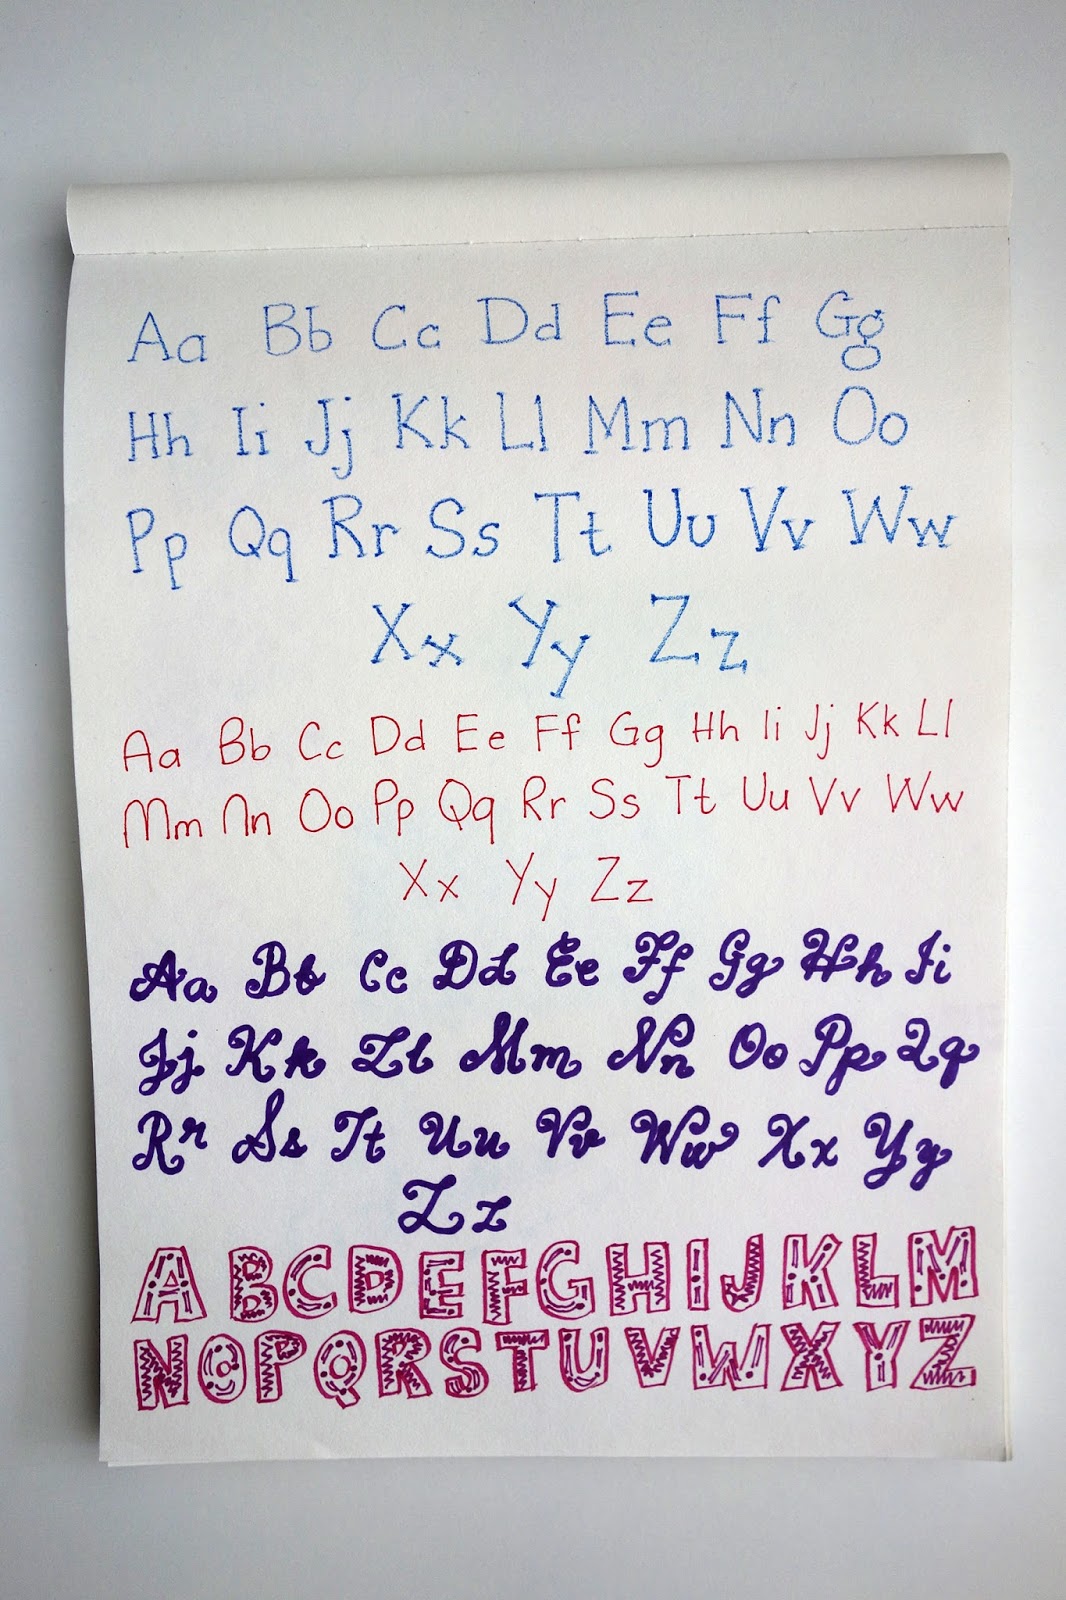 Aa Bb Cc Dd Ee Ff Gg
Hh Ii Jj Kk Ll Mm Nn Oo
Pp Qq Rr Ss Tt Uu Vv Ww
Xx Yy Zz
Aa Bb Cc Dd Ee Ff Gg Hh Ii Jj Kk Ll
Mm Nn Oo Pp Qq Rr Ss Tt Uu Vv Ww
Xx Yy Zz
Aa Bb Cc Dd Ee Ff Gg Hh Ii
Jj Kk Ll Mm Nn Oo Pp Qq
Rr Ss Tt Uu Vv Ww Xx Yy
Zz
ABCDEFGHIJKLM
NOPQRSTUVWXYZ